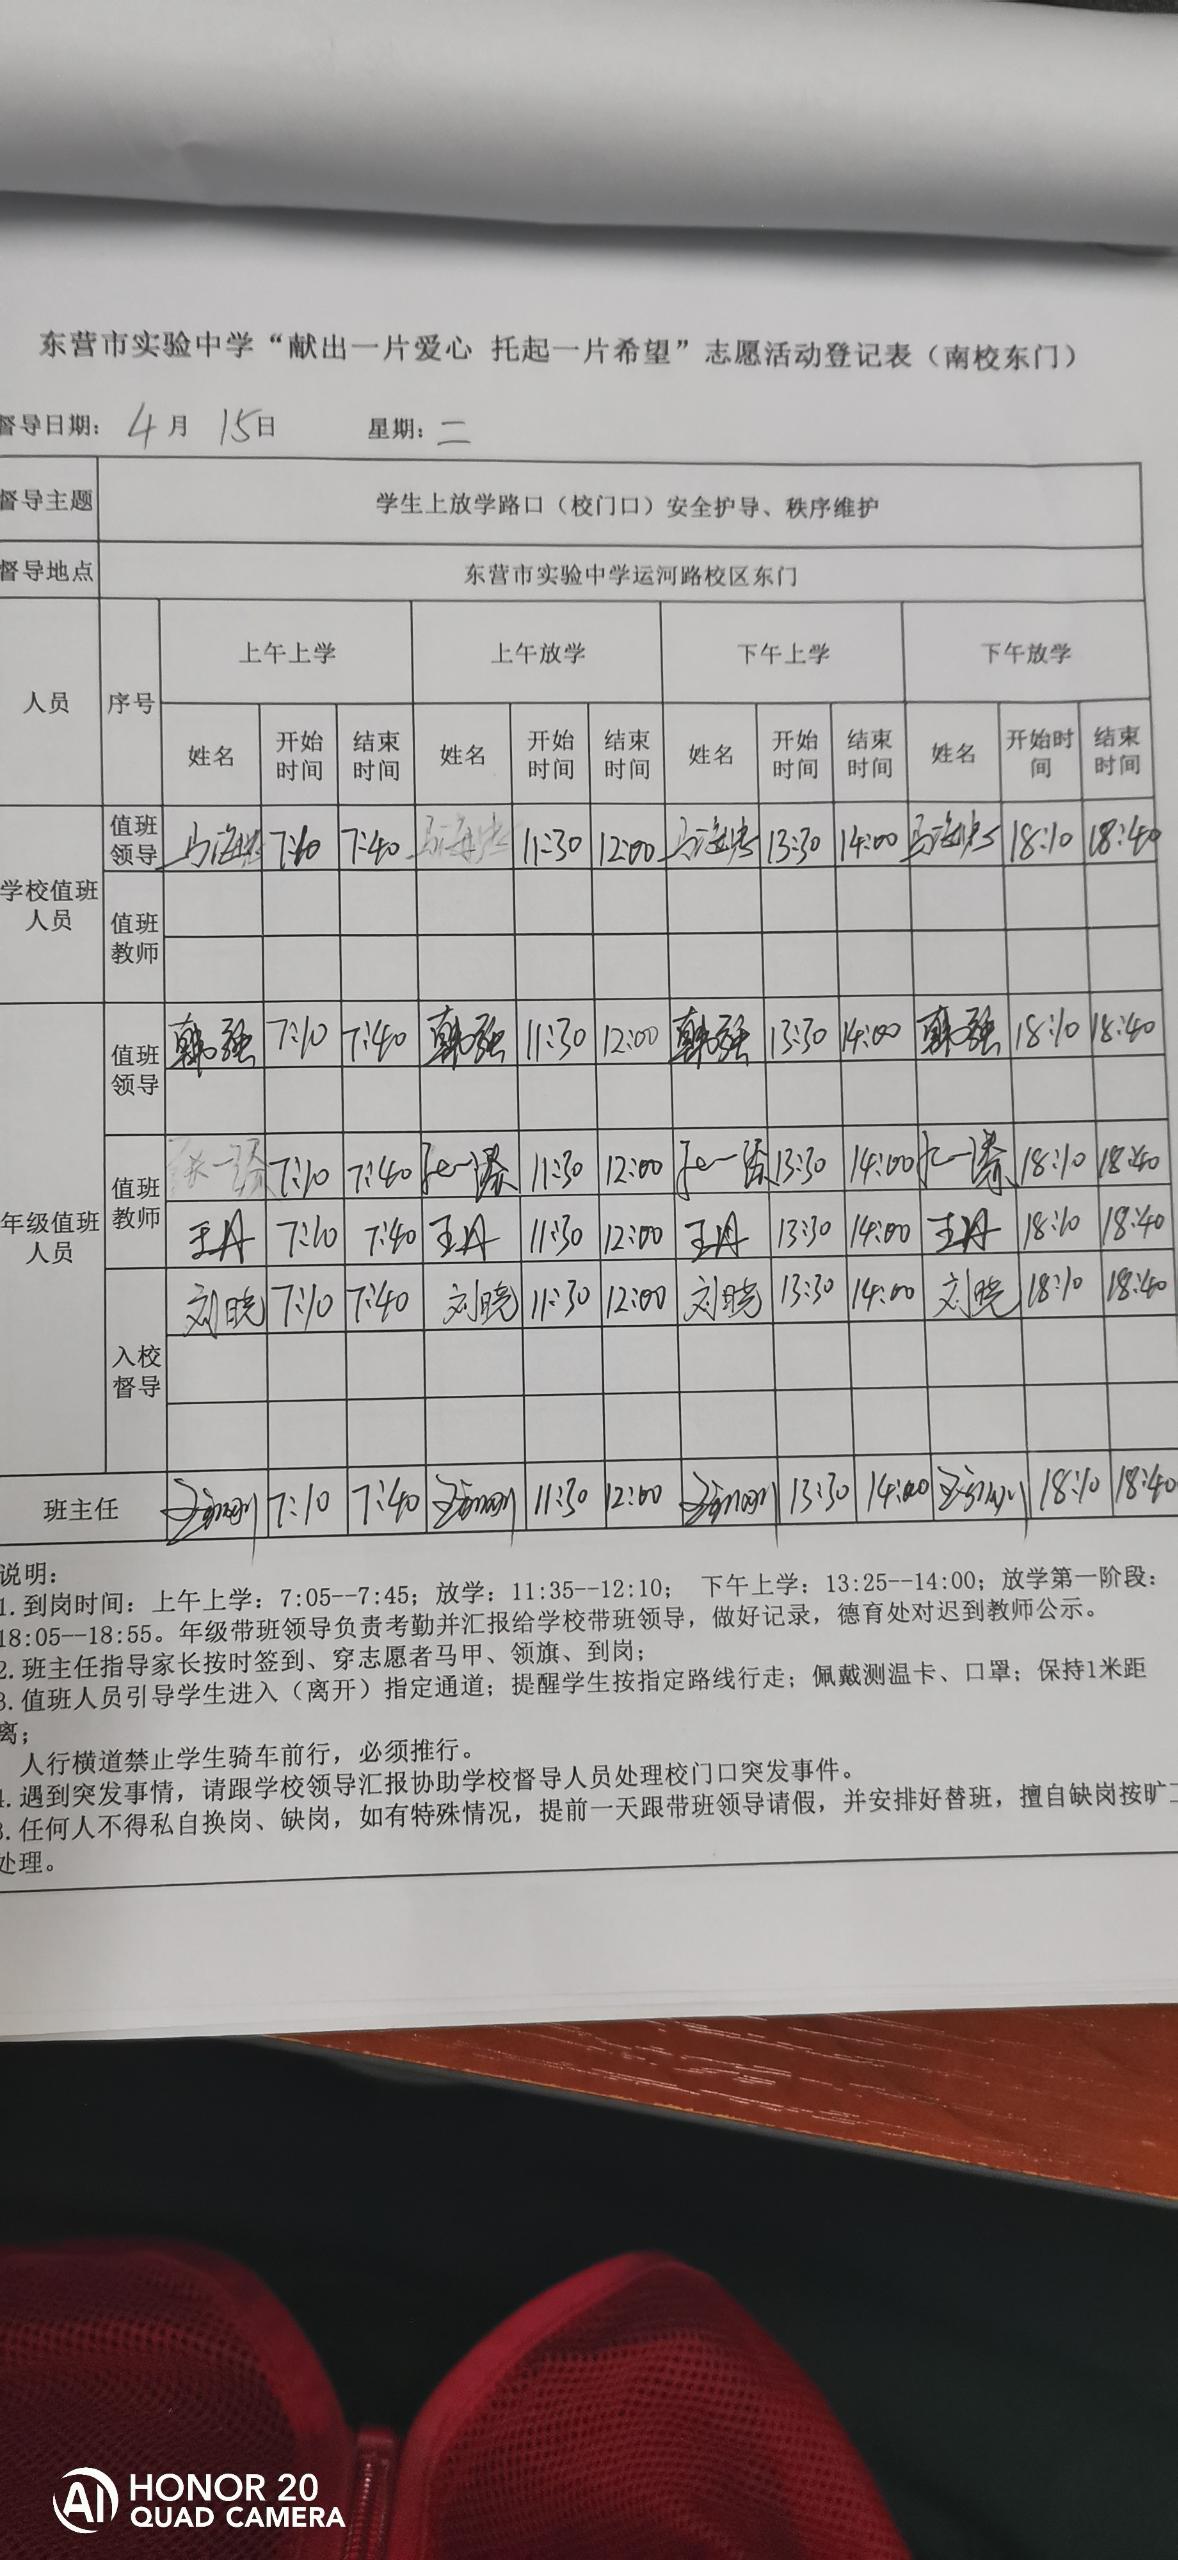 东营市实验中学“献出一片爱心 托起一片希望”志愿活动登记表（南校东门）
督导日期： 4月 15日 星期：二
督导主题 学生上放学路口（校门口）安全护导、秩序维护
督导地点 东营市实验中学运河路校区东门
人员 序号 上午上学 上午放学 下午上学 下午放学
姓名 开始时间 结束时间 姓名 开始时间 结束时间 姓名 开始时间 结束时间 姓名 开始时间 结束时间
学校值班人员 值班领导 7:10 7:40 11:30 12:00 13:30 14:00 18:10 18:40
值班教师
年级值班人员 值班领导 韩强 7:10 7:40 韩强 11:30 12:00 韩强 13:30 14:00 韩强 18:10 18:40
值班教师 7:10 7:40 11:30 12:00 13:30 14:00 18:10 18:40
王丹 7:10 7:40 王丹 11:30 12:00 王丹 13:30 14:00 王丹 18:10 18:40
入校督导 刘晓 7:10 7:40 刘晓 11:30 12:00 刘晓 13:30 14:00 刘晓 18:10 18:40
班主任 7:10 7:40 11:30 12:00 13:30 14:00 18:10 18:40
说明：
1.到岗时间：上午上学：7:05--7:45；放学：11:35--12:10； 下午上学：13:25--14:00；放学第一阶段：
18:05--18:55。年级带班领导负责考勤并汇报给学校带班领导，做好记录，德育处对迟到教师公示。
2.班主任指导家长按时签到、穿志愿者马甲、领旗、到岗；
3.值班人员引导学生进入（离开）指定通道；提醒学生按指定路线行走；佩戴测温卡、口罩；保持1米距
离；
人行横道禁止学生骑车前行，必须推行。
4.遇到突发事情，请跟学校领导汇报协助学校督导人员处理校门口突发事件。
3.任何人不得私自换岗、缺岗，如有特殊情况，提前一天跟带班领导请假，并安排好替班，擅自缺岗按旷工
处理。
AI HONOR 20
QUAD CAMERA